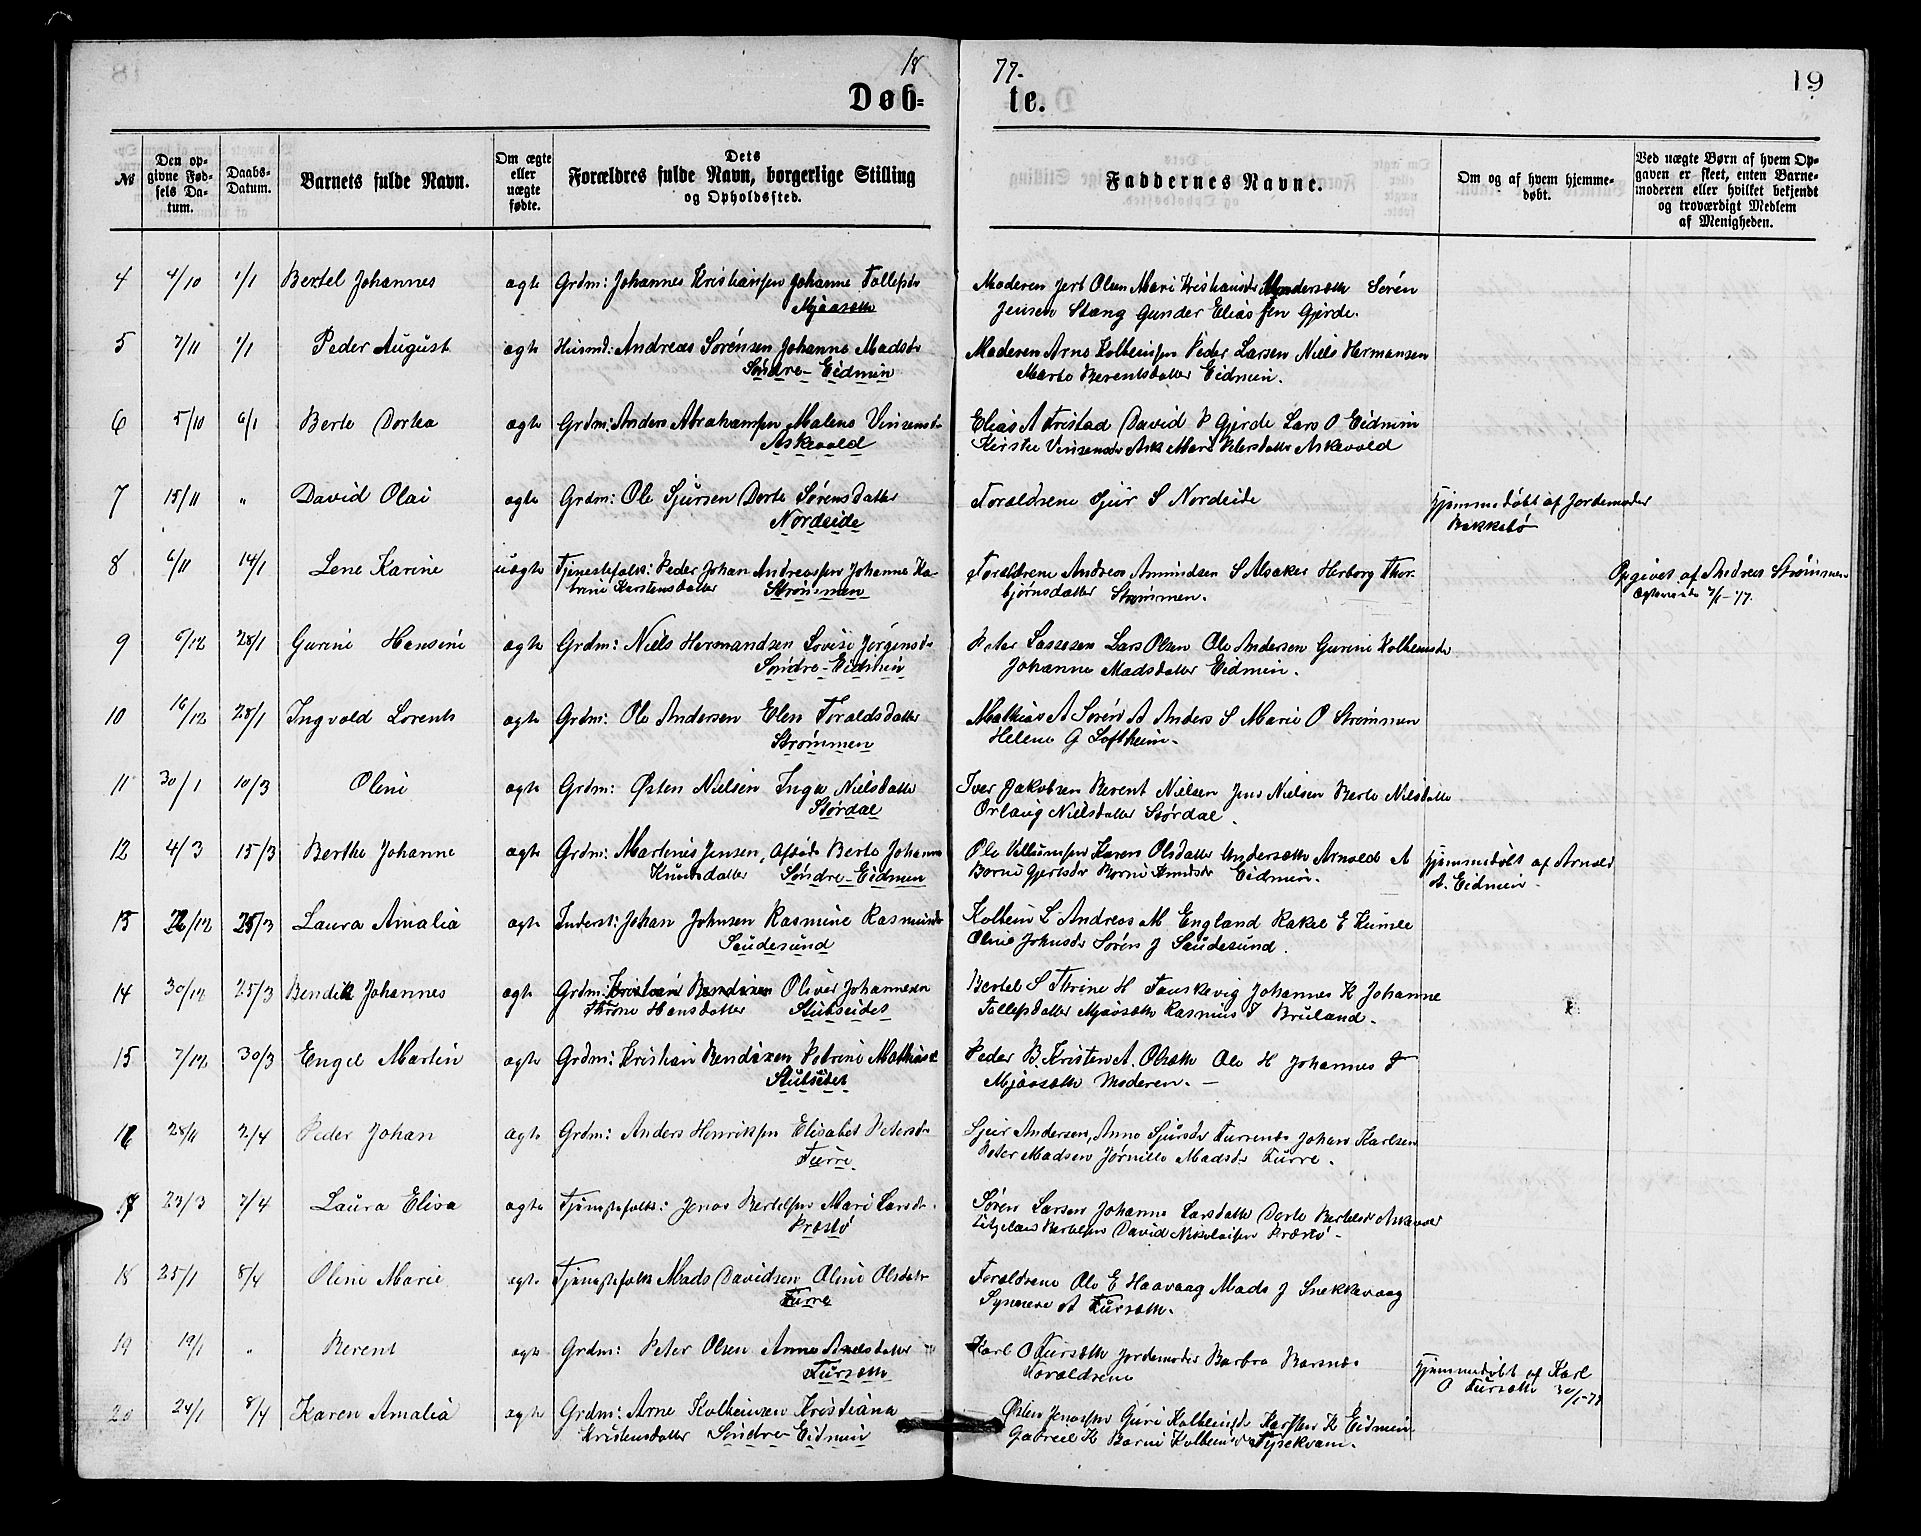 18 77. 19
Døb- te.
№ Den opgivne Fødsels Datum. Daabs-Datum. Barnets fulde Navn. Om ægte eller uægte fødte. Dets Forældres fulde Navn, borgerlige Stilling og Opholdssted. Faddernes Navne. Om og af hvem hjemmedøbt. Ved uægte Børn af hvem Opgaven er skeet, enten Barnemoderen eller hvilket bekjendt og troværdigt Medlem af Menigheden.
4 4/10 1/1 Bertel Johannes ægte Grdm: Johannes Kristiansen Johanne Tollefsdr Moderen Jert Olsen Mari Kristiansdr Søren
Mjaasæth Jensen Stang Gunder Eliassen Gjerde.
5 7/11 1/1 Peder August ægte Husmd: Andreas Sørensen Johanne Madsdr Moderen Arne Kolbeinsen Peder Larsen Niels Hermansen
Søndre-Eidmin Marte Berentsdatter Eidmin.
6 5/10 6/1 Berte Dortea ægte Grdm: Anders Abrahamsen Malene Vinsensdr Elias A Fristad David P Gjerde Lars O Eidmin
Askevold Kirstie Vinsensdr Ask Mari Petersdatter Askevold
7 15/11 " David Olai ægte Grdm: Ole Sjursen Dorte Sørensdatter Forældrene Sjur S Nordeide Hjemmedøbt af Jordemoder
Nordeide Bakkebø
8 6/11 14/1 Lene Karine uægte Tjenestefolk: Peder Johan Andreassen Johanne Ka- Forældrene Andreas Amundsen S Alsaker Herborg Thor- Opgivet af Andreas Strømmen
trine Karstensdatter Strømmen bjørnsdatter Strømmen.
9 6/12 28/1 Gurine Hansine ægte Grdm: Niels Hermandsen Lovise Jørgensdr Peter Lassesen Lars Olsen Ole Andersen Gurine Kolbeinsdr
Søndre-Eidmin Johanne Madsdatter Eidmin.
10 16/12 28/1 Ingvald Lorents ægte Grdm: Ole Andersen Elen Toraldsdatter Mathias A Søren A Anders S Marie O Strømmen
Strømmen Helene G Loftheim.
11 30/1 10/3 Oline ægte Grdm: Østen Nielsen Inga Nielsdatter Iver Jakobsen Berent Nielsen Jens Nielsen Berte Nilsdatter
Størdal Orlaug Nielsdatter Størdal.
12 4/3 15/3 Berthe Johanne ægte Grdm: Martines Jensen, Afdøde Berte Johanne Ole Villumsen Karen Olsdatter Undersæth Arnold A Hjemmedøbt af Arnold
Knudsdatter Søndre-Eidmen Borni Gjertsdr Borni Knudsdr Eidmein. A. Eidmein.
13 26/12 25/3 Laura Amalia ægte Inderst: Johan Johnsen Rasmine Rasmusdr Kolbein L Andreas M England Rakel E Kumle
Saudesund Oline Johnsdr Søren J Saudesund.
14 30/12 25/3 Bendik Johannes ægte Grdm: Kristian Bendixen Oliver Johannesen Bertel S Thrine H Fauskevig Johannes K Johanne
Thrine Hansdatter Stubseidet Tollefsdatter Mjaasæth Rasmus I Bruland.
15 7/12 30/3 Engel Martin ægte Grdm: Kristian Bendixen Petrine Mathiasd Peder B. Kristen A. Olsæth Ole H Johannes T
Stubseidet Mjaasæth Moderen.
16 28/11 2/4 Peder Johan ægte Grdm: Anders Henriksen Elisabet Petersdr Sjur Andersen, Anne Sjursdr Furrenes Johan Karlsen
Furre. Peter Madsen Jørnille Madsdr Furre.
17 23/3 2/4 Laura Elisa ægte Tjenestefolk: Jonas Bertelsen Mari Larsdr. Søren Larsen Johanne Larsdatter Dorte Bertelsdr Askevold
Præstø Bertelsen David Nikolaisen Præstø.
18 25/1 8/4 Oline Marie ægte Tjenestefolk Mads Davidsen Oline Olsdatr Forældrene Ole E Haavaag Mads J Snekkevaag
Furre Synneve A Fursæth.
19 19/1 " Berent ægte Grdm: Peter Olsen Anne Axelsdatter Karl O Fursæth Jordemoder Barbra Barsnes Hjemmedøbt af Karl
Fursæth Forældrene O Fursæth 30/1-77
20 24/1 8/4 Karen Amalia ægte Grdm: Arne Kolbeinsen Kristiana Østen Jonassen Guri Kolbeinsdr Karsten K Eidmein
Kristensdatter Søndre-Eidmein Gabriel K Borni Kolbeinsdr Tysekvam.